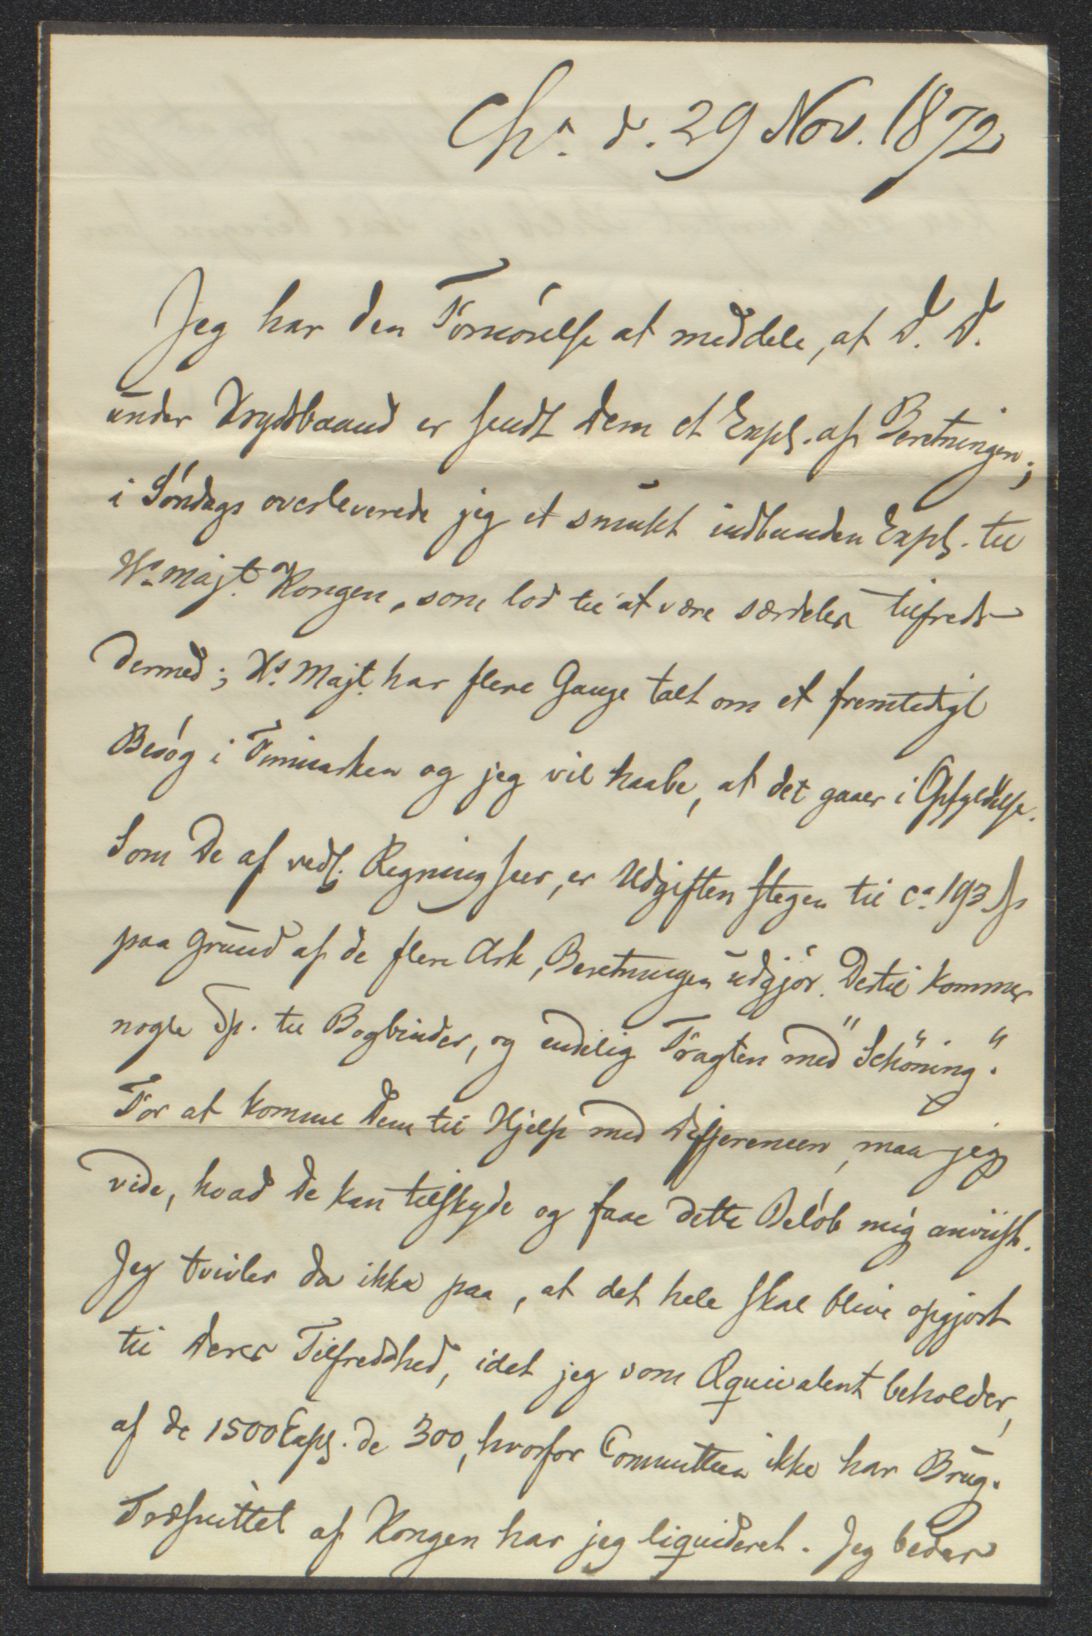 Chr. d. 29 Nov. 1872
Jeg har den Fornöielse at meddele, at D. D.
under Krydsbaand er sendt Dem et Expl. af Beretningen;
i Söndags overleverede jeg et smukt indbunden Expl. til
Hs. Majt. Kongen, som lod til at være særdeles tilfreds
dermed; Hs. Majt. har flere Gange talt om et fremtidigt
Besög i Finmarken og jeg vil haabe, at det gaaer i Opfyldelse.
Som De af vedl. Regning seer, er Udgiften stegen til ca. 193 Sp
paa Grund af de flere Ark, Beretningen udgjör. Dertil kommer
nogle Sp. til Bogbinder, og endelig Fragten med "Schöning".
For at komme Dem til Hjelp med Differencen, maa jeg
vide, hvad De kan tilskyde og faae dette Belöb mig anviist.
Jeg tvivler da ikke paa, at det hele skal blive opgjort
til Deres Tilfredshed, idet jeg som Æquivalent beholder,
af de 1500 Expl. de 300, hvorfor Committeen ikke har Brug.
Træsnittet af Kongen har jeg liquideret. Jeg beder